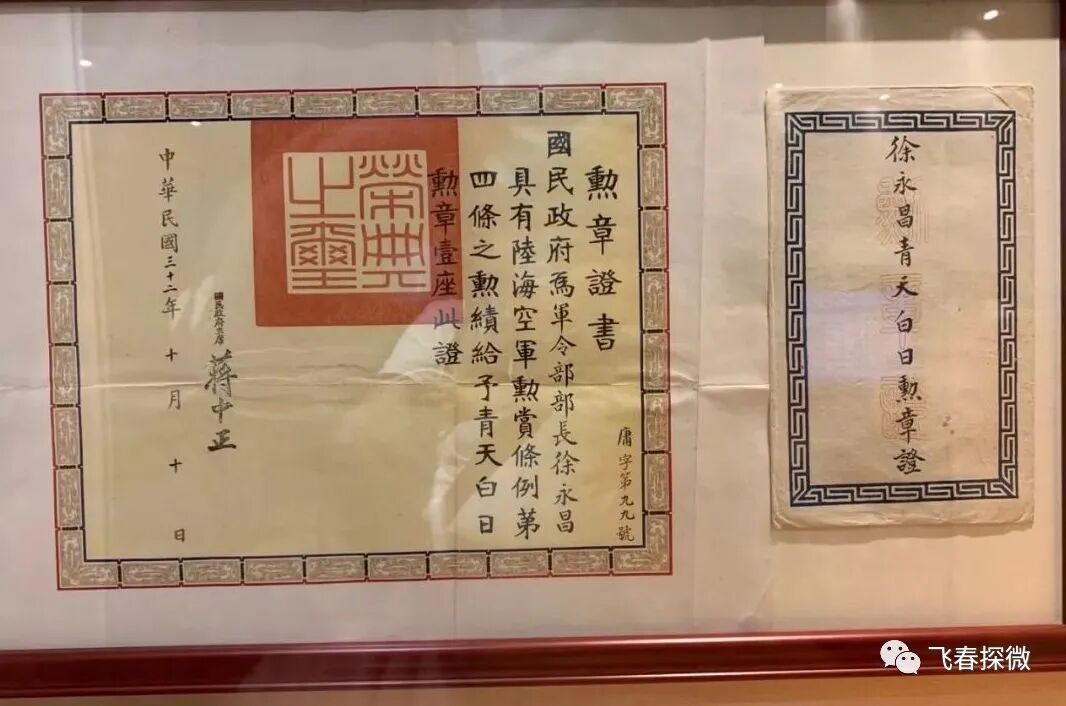 勳章證書
庸字第九九號
國民政府爲軍令部部長徐永昌
具有陸海空軍勳賞條例第
四條之勳績給予青天白日
勳章壹座此證
榮典
之璽
國民政府主席 蔣中正
中華民國三十二年十月十日
徐永昌青天白日勳章證
飞春探微